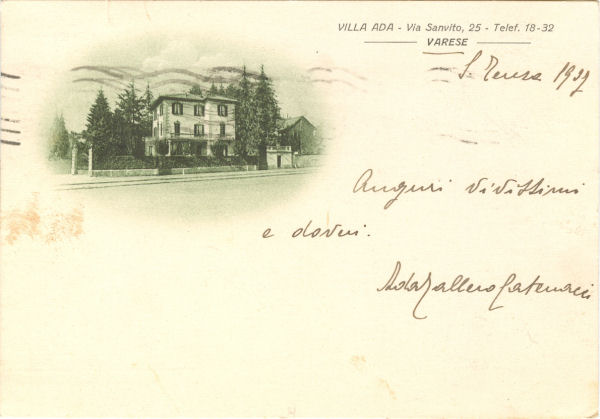 VILLA ADA - Via Sanvito, 25 - Telef. 18-32
VARESE
S. Teresa 1937
Auguri vivissimi
e doveri.
Ada